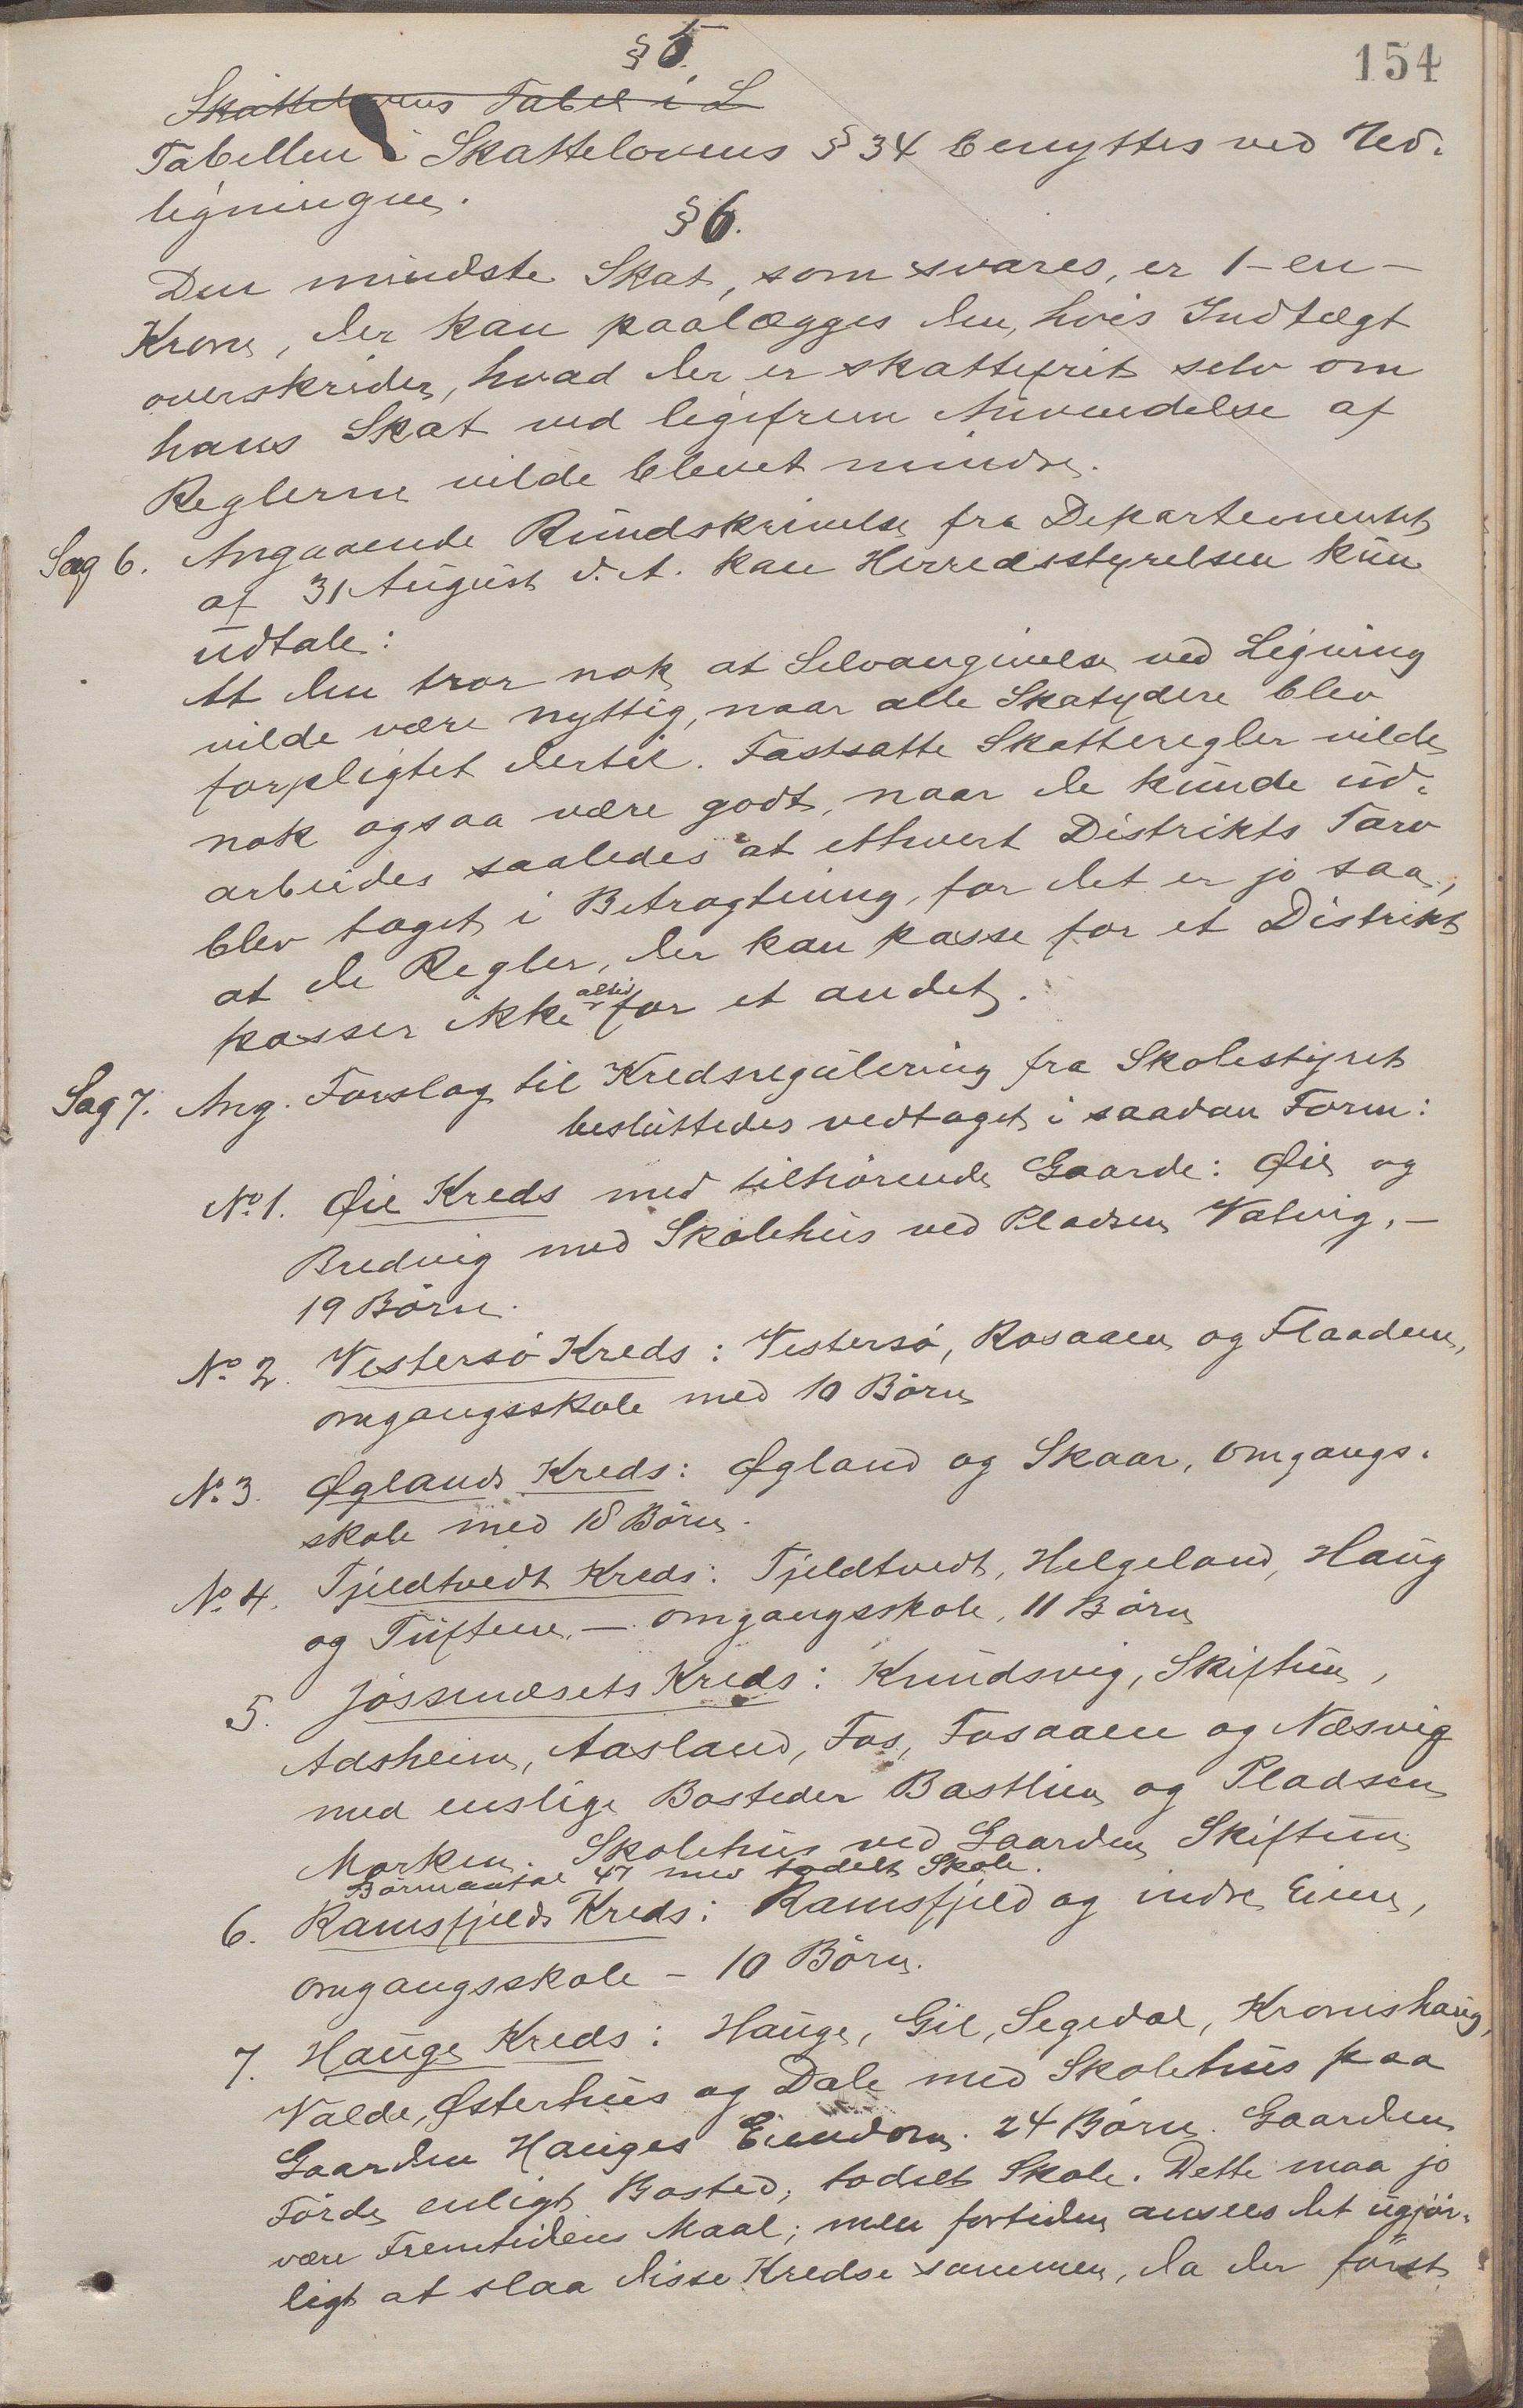 154
§ 5.
Skattelovens Tabel i L
Tabellen i Skattelovens § 34 benyttes ved Ned-
ligningen.
§ 6.
Den mindste Skat, som svares, er 1 - en -
Krone, der kan paalægges den, hvis Indtægt
overskrider, hvad der er skattefrit selv om
hans Skat ved ligefrem Anvendelse af
Reglerne vilde blevet mindre.
Sag 6. Angaaende Rundskrivelse fra Departementet
af 31 August d. A. kan Herredsstyrelsen kun
udtale:
At den tror nok at Selvangivelse ved Ligning
vilde være nyttig, naar alle Skatydere blev
forpligtet dertil. Fastsatte Skatteregler vilde
nok ogsaa være godt, naar de kunde ud-
arbeides saaledes at ethvert Distrikts Tarv
blev taget i Betragtning, for det er jo saa,
at de Regler, der kan passe for et Distrikt
passer ikke altid for et andet.
Sag 7. Ang. Forslag til Kredsregulering fra Skolestyret
besluttedes vedtaget i saadan Form:
No. 1. Øie Kreds med tilhørende Gaarde: Øie og
Bredvig med Skolehus ved Pladsen Valvig, -
19 Børn.
No. 2. Vestersø Kreds: Vestersø, Rosaaen og Flaaden,
omgangsskole med 10 Børn
No. 3. Øglands Kreds: Øgland og Skaar, omgangs-
skole med 18 Børn.
No. 4. Tjeldtvedt Kreds: Tjeldtvedt, Helgeland, Haug
og Tuften, - omgangsskole, 11 Børn
5. Jøssenæsets Kreds: Knudsvig, Skiftun,
Adsheim, Aasland, Fos, Fosaaen og Næsvig
med enslige Bosteder Bastlien og Pladsen
Marken. Skolehus ved Gaarden Skiftun
Børneantal 47 med todelt Skole.
6. Ramsfjeld Kreds: Ramsfjeld og indre Eime,
omgangsskole - 10 Børn.
7. Hauge Kreds: Hauge, Gil, Segedal, Kroneshaug,
Valde, Østerhus og Dale med Skolehus paa
Gaarden Hauges Eiendom. 24 Børn. Gaarden
Førde enligt Bosted, todelt Skole. Dette maa jo
være Fremtidens Maal; men fortiden ansees det ugjør-
ligt at slaa disse Kredse sammen, da der først